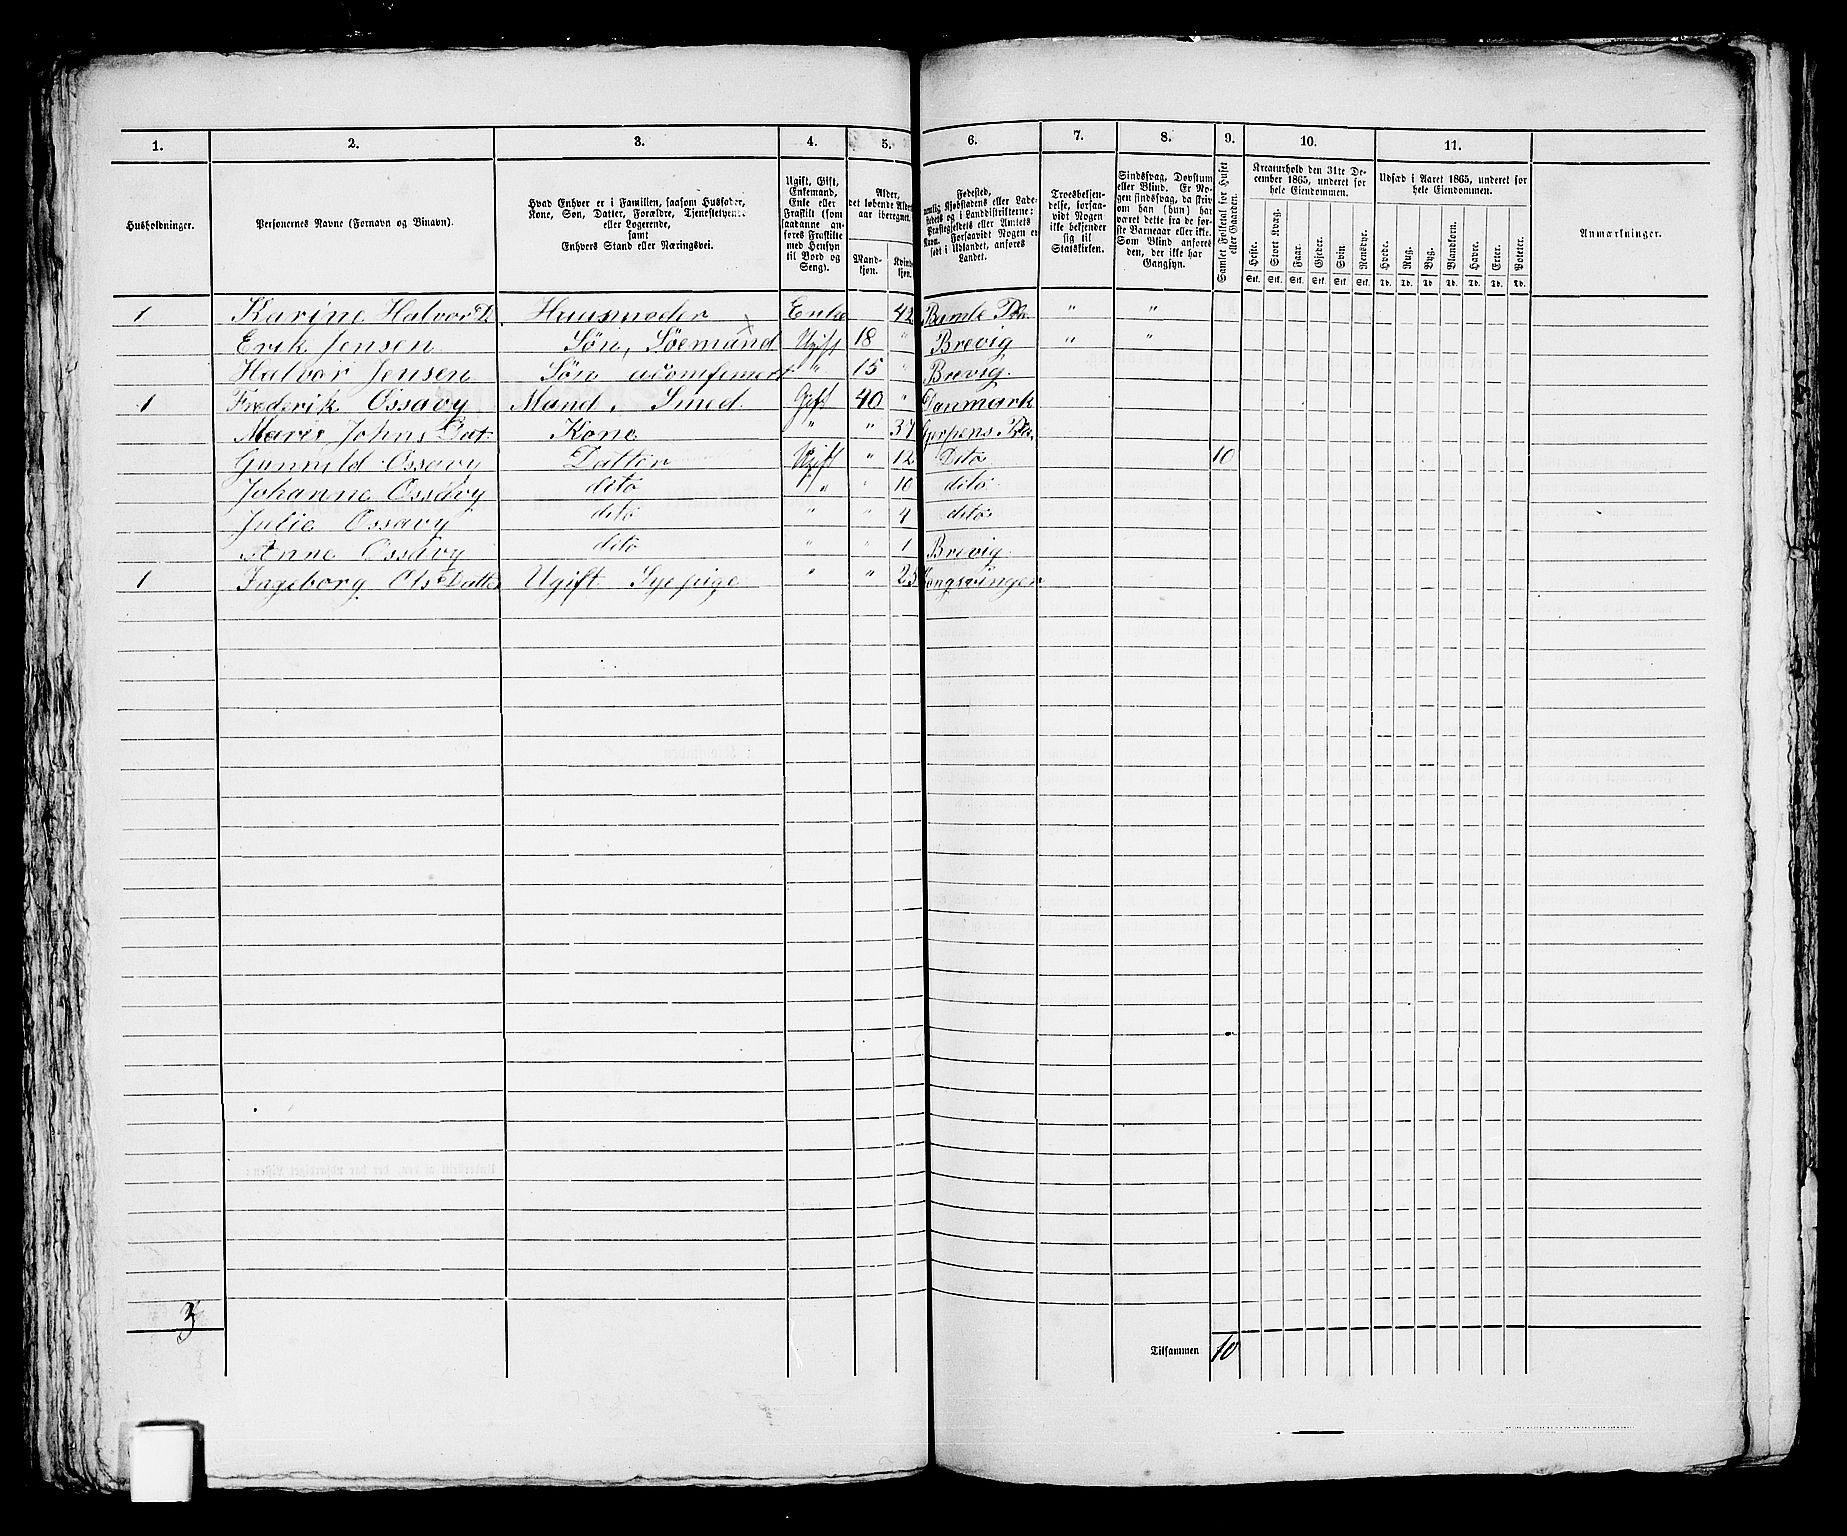 1. 2. 3. 4. 5. 6. 7. 8. 9. 10. 11.
Husholdninger.
Personernes Navne (Fornavn og Binavn).
Hvad Enhver er i Familien, saasom Husfader,
Kone, Søn, Datter, Forældre, Tjenestetyende
eller Logerende,
samt
Enhvers Stand eller Næringsvei.
Ugift, Gift,
Enkemand,
Enke eller
Fraskilt (som
saadanne an-
føres Fraskilte
med Hensyn
til Bord og
Seng).
Alder,
det løbende Alders-
aar iberegnet.
Mand-
kjøn.
Kvinde-
kjøn.
Fødested,
nemlig Kjøbstadens eller Lade-
stedets og i Landdistrikterne:
Præstegjeldets eller Amtets
Navn. Forsaavidt Nogen er
født i Udlandet, anføres
Landet.
Troesbekjen-
delse, forsaa-
vidt Nogen
ikke bekjender
sig til
Statskirken.
Sindssvag, Døvstum
eller Blind. Er No-
gen sindssvag, da skriv
om han (hun) har
været dette fra de før-
ste Barneaar eller ikke.
Som Blind anføres
den, der ikke har
Gangsyn.
Samlet Folketal for Huset
eller Gaarden.
Kreaturhold den 31te De-
cember 1865, underet for
hele Eiendommen.
Heste. Stort Kvæg. Faar. Gjeder. Svin. Rensdyr.
Stk. Stk. Stk. Stk. Stk. Stk.
Udsæd i Aaret 1865, underet for
hele Eiendommen.
Hvede. Rug. Byg. Blandkorn. Havre. Erter. Poteter.
Td. Td. Td. Td. Td. Td. Td.
Anmærkninger.
1 Karine Halvor D. Huusmoder Enke 42 Bamle " "
Erik Jensen Søn, Sømand Ugift 18 " Brevig " "
Halvor Jensen Søn " 15 " Brevig.
1 Frederik Ossavy Mand, Smed Gift 40 " Danmark
Marie Johns Dat. Kone " " 37 Gjerpens
Gunnild Ossavy Datter Ugift " 12 Dito 10
Johanne Ossavy dito " " 10 dito
Julie Ossavy dito " " 4 dito
Anne Ossavy dito " " 1 Brevig.
1 Ingeborg Ols Datter Ugift Sypige " " 25 Kongsvinger
3
Tilsammen 10